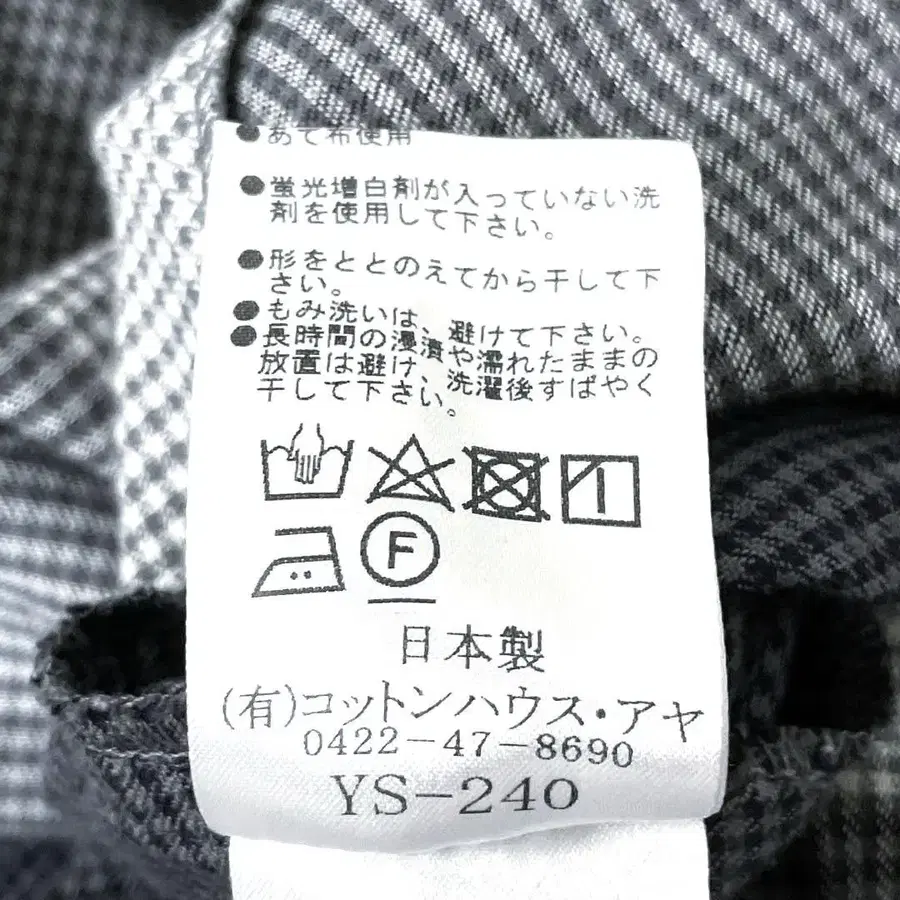 ●あて布使用
●蛍光増白剤が入っていない洗
剤を使用して下さい。
●形をととのえてから干して下
さい。
●もみ洗いは、避けて下さい。
●長時間の浸漬や濡れたままの
放置は避け、洗濯後すばやく
干して下さい。
F
日本製
(有)コットンハウス・アヤ
0422-47-8690
YS-240